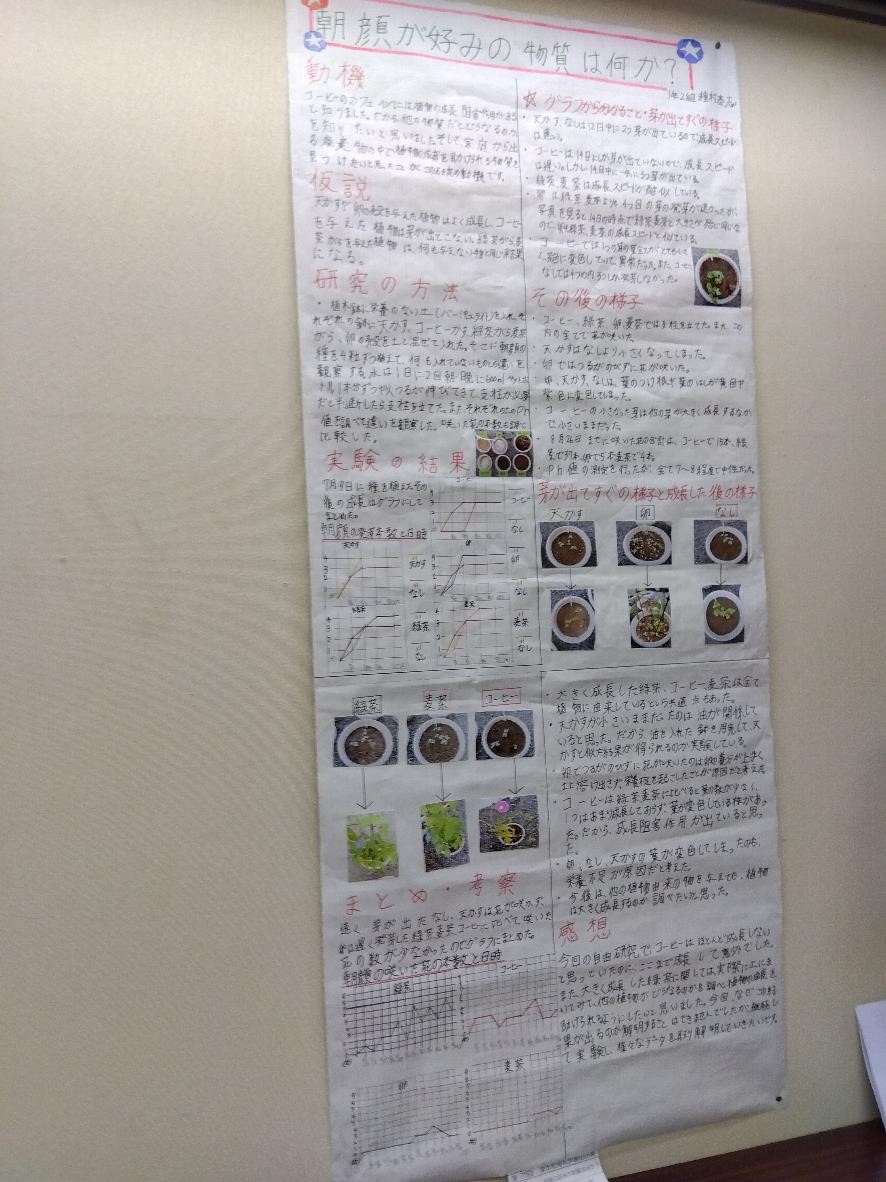 朝顔が好みの物質は何か?
1年2組
動機
コーヒーのカフェインには植物の成長阻害作用がある
と知りました。だから他の物質だとどうなるのか
を知りたいと思いました。そして家庭から出
る廃棄物の中で植物の成長を助けられる物質を
見つけたいと思ったことがこの研究の動機です。
仮説
天かすや卵の殻を与えた植物はよく成長し、コーヒー
を与えた植物は芽が出てこない。緑茶がら麦
茶がらを与えた植物は、何も与えない物と同じ結果
になる。
研究の方法
・植木鉢に栄養のない土(バーミキュライト)を入れ、そ
れぞれの鉢に天かす、コーヒーかす、緑茶がら麦茶
がら、卵の殻を土と混ぜて入れた。そこに朝顔の
種を4粒ずつ植えて、何も入れていないものとの違いを
観察する。水は1日に2回朝・晩に600ml
1本分ずつやりつるが伸びてきて支柱が必要
だと判断したら支柱を立てた。またそれぞれの土のPh
値を調べて違いを観察した。咲いた花の本数も調べ
比較した。
実験の結果
7月9日に種を植えその
後の成長はグラフにして
まとめた。
朝顔の発芽本数と日時
コーヒー
コーヒー
なし
天かす
天かす
なし
卵
卵
なし
緑茶
緑茶
なし
麦茶
麦茶
なし
☆グラフからわかること・芽が出てすぐの様子
・天かす、なしは12日中に2つ芽が出ているので成長スピード
は速い。
・コーヒーは14日にしか芽が出ていないので、成長スピード
は遅い。しかし14日中に一気に3つ芽が出ている。
・緑茶麦茶は成長スピードが酷似している。
・卵は緑茶麦茶より4つ目の芽の発芽が遅かったが、
写真を見ると14日の時点で緑茶麦茶と大きさが殆ど同じな
ので、卵緑茶麦茶の成長スピードと似ている。
・コーヒーでは1つの芽の
色に変色していて、異常だった。また、コーヒー
なしでは4つの内3つしか発芽しなかった。
その後の様子
・コーヒー、緑茶、卵、麦茶では支柱を立てた。また、この
内の全てで花が咲いた。
・天かすはなしより小さくなってしまった。
・卵ではつるがのびずに花が咲いた。
・卵、天かす、なしは、葉のつけ根や葉のはしが黄色や
紫色に変色してしまった。
・コーヒーの小さかった芽は他の芽が大きく成長するなか
で小さいままだった。
・8月26日までに咲いた花の合計は、コーヒーで15本、緑
茶で31本、卵で5本麦茶で4本。
・ph値の測定を行ったが、全て7~8.3程度で中性だった。
芽が出てすぐの様子と成長した後の様子
天かす 卵 なし
緑茶 麦茶 コーヒー
まとめ・考察
速く芽が出たなし、天かすは花が咲かず、
卵は遅く発芽した緑茶麦茶コーヒーに比べて咲いた
花の数が少なかったのでグラフにまとめた。
朝顔の咲いた花の本数と日時
緑茶
コーヒー
卵
麦茶
・大きく成長した緑茶、コーヒー麦茶は全て
植物に由来しているという共通点もあった。
・天かすが小さいままだったのは油が関係して
いると思った。だから、油を入れた鉢を用意して、天
かすと似た結果が得られるのか実験している。
・卵でつるがのびずに花が咲いたのは卵の養分が上手く
土に溶け出さず、
・コーヒーは緑茶麦茶に比べると葉の数が少なく、
1つはあまり成長しておらず、葉が変色している株があっ
た。だから、成長阻害作用が出ていると思っ
た。
・卵、なし、天かすの葉が変色してしまったのも、
栄養不足が原因だと考えた。
・今後は、他の植物由来の物を与えても、植物
は大きく成長するのか調べたいと思った。
感想
今回の自由研究で、コーヒーはほとんど成長しない
と思っていたのに、ここまで成長して意外でした。
また、大きく成長した緑茶に関しては、実際に土にま
いてみて、他の植物がどうなるのかを調べ、植物の成長を
助けられるようにしたいと思いました。今回、なぜこの結
果が出るのか解明することはできませんでしたが、継続し
て実験し、様々なデータを取り解明していきたいです。